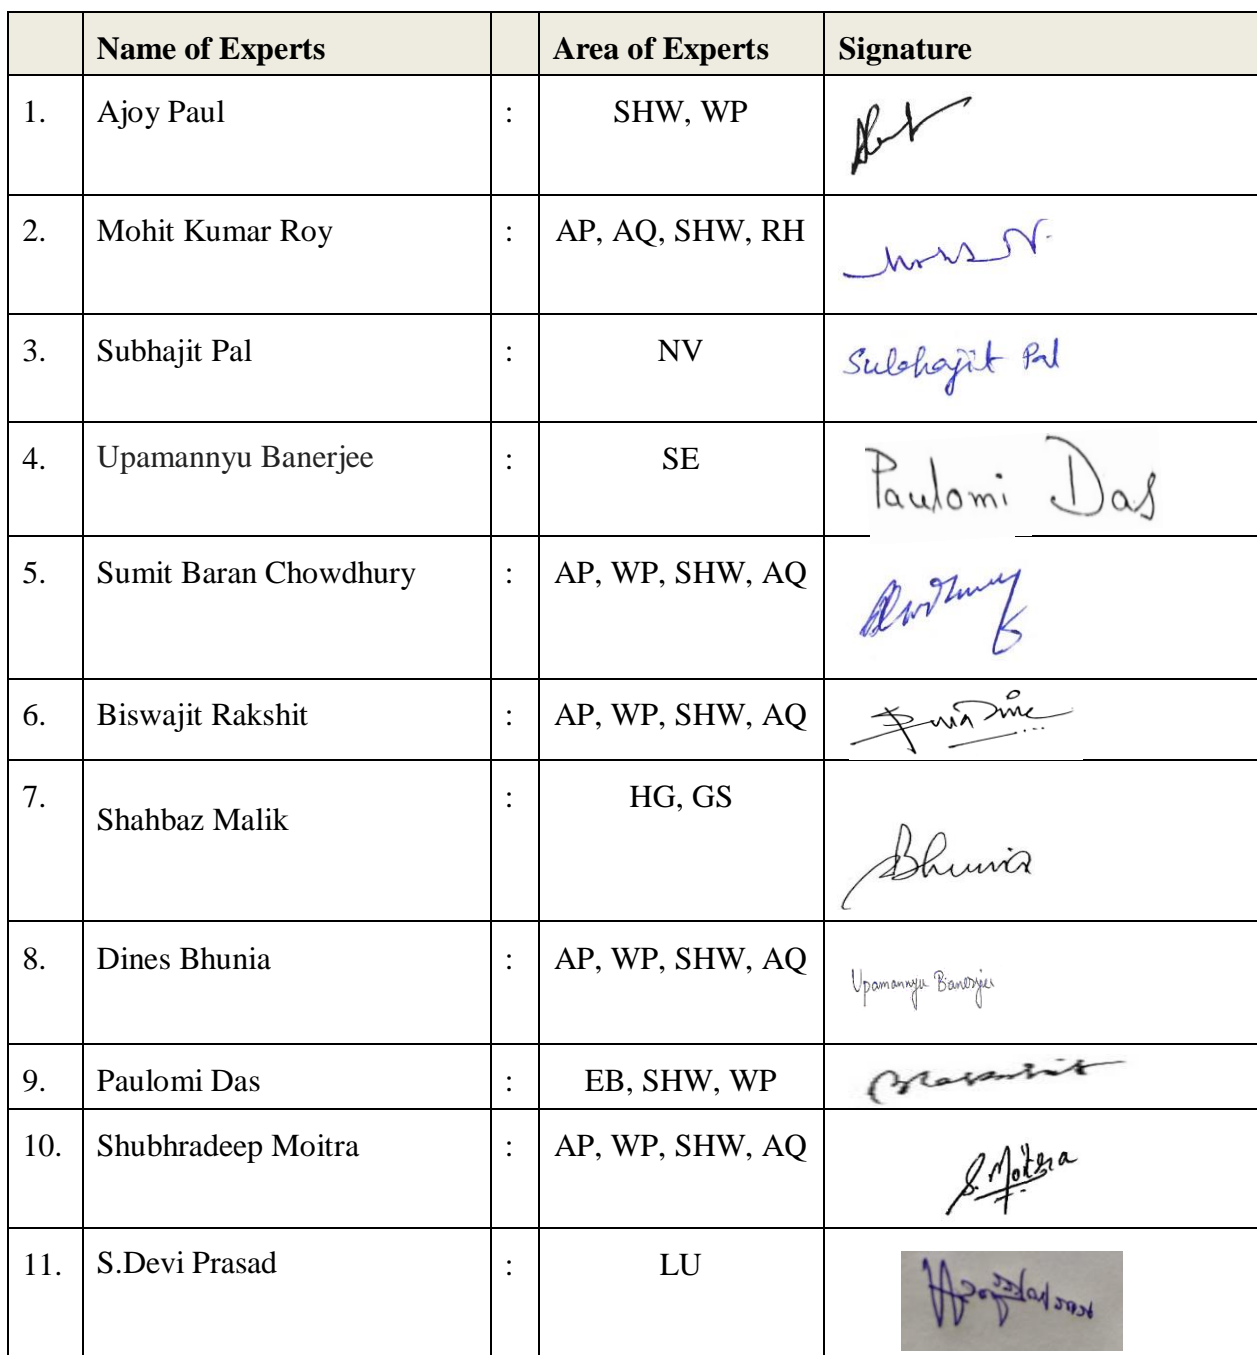 Name of Experts Area of Experts Signature
1. Ajoy Paul : SHW, WP
2. Mohit Kumar Roy : AP, AQ, SHW, RH
3. Subhajit Pal : NV Subhajit Pal
4. Upamannyu Banerjee : SE Paulomi Das
5. Sumit Baran Chowdhury : AP, WP, SHW, AQ
6. Biswajit Rakshit : AP, WP, SHW, AQ
7. Shahbaz Malik : HG, GS Bhunia
8. Dines Bhunia : AP, WP, SHW, AQ Upamannyu Banerjee
9. Paulomi Das : EB, SHW, WP
10. Shubhradeep Moitra : AP, WP, SHW, AQ S. Moitra
11. S.Devi Prasad : LU